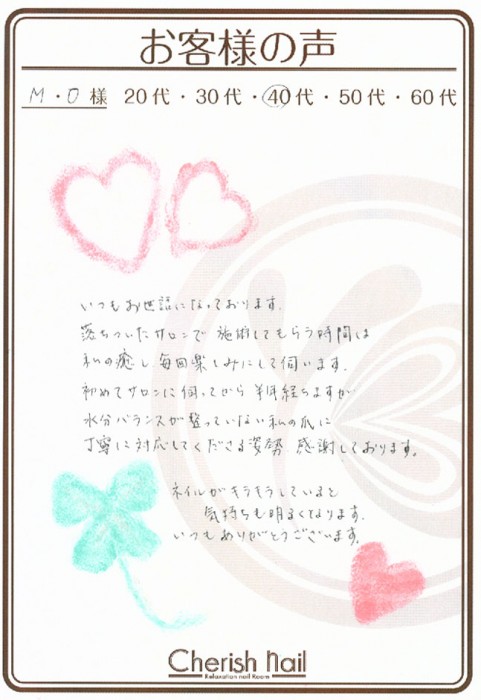 お客様の声
M・O 様 20代・30代・40代・50代・60代
いつもお世話になっております。
落ちついたサロンで 施術してもらう時間は
私の癒し、毎回楽しみにして伺います。
初めてサロンに伺ってから 半年経ちますが
水分バランスが整っていない私の爪に
丁寧に対応してくださる姿勢 感謝しております。
ネイルがキラキラしていると
気持ちも明るくなります。
いつもありがとうございます。
Cherish Nail
Relaxation nail Room